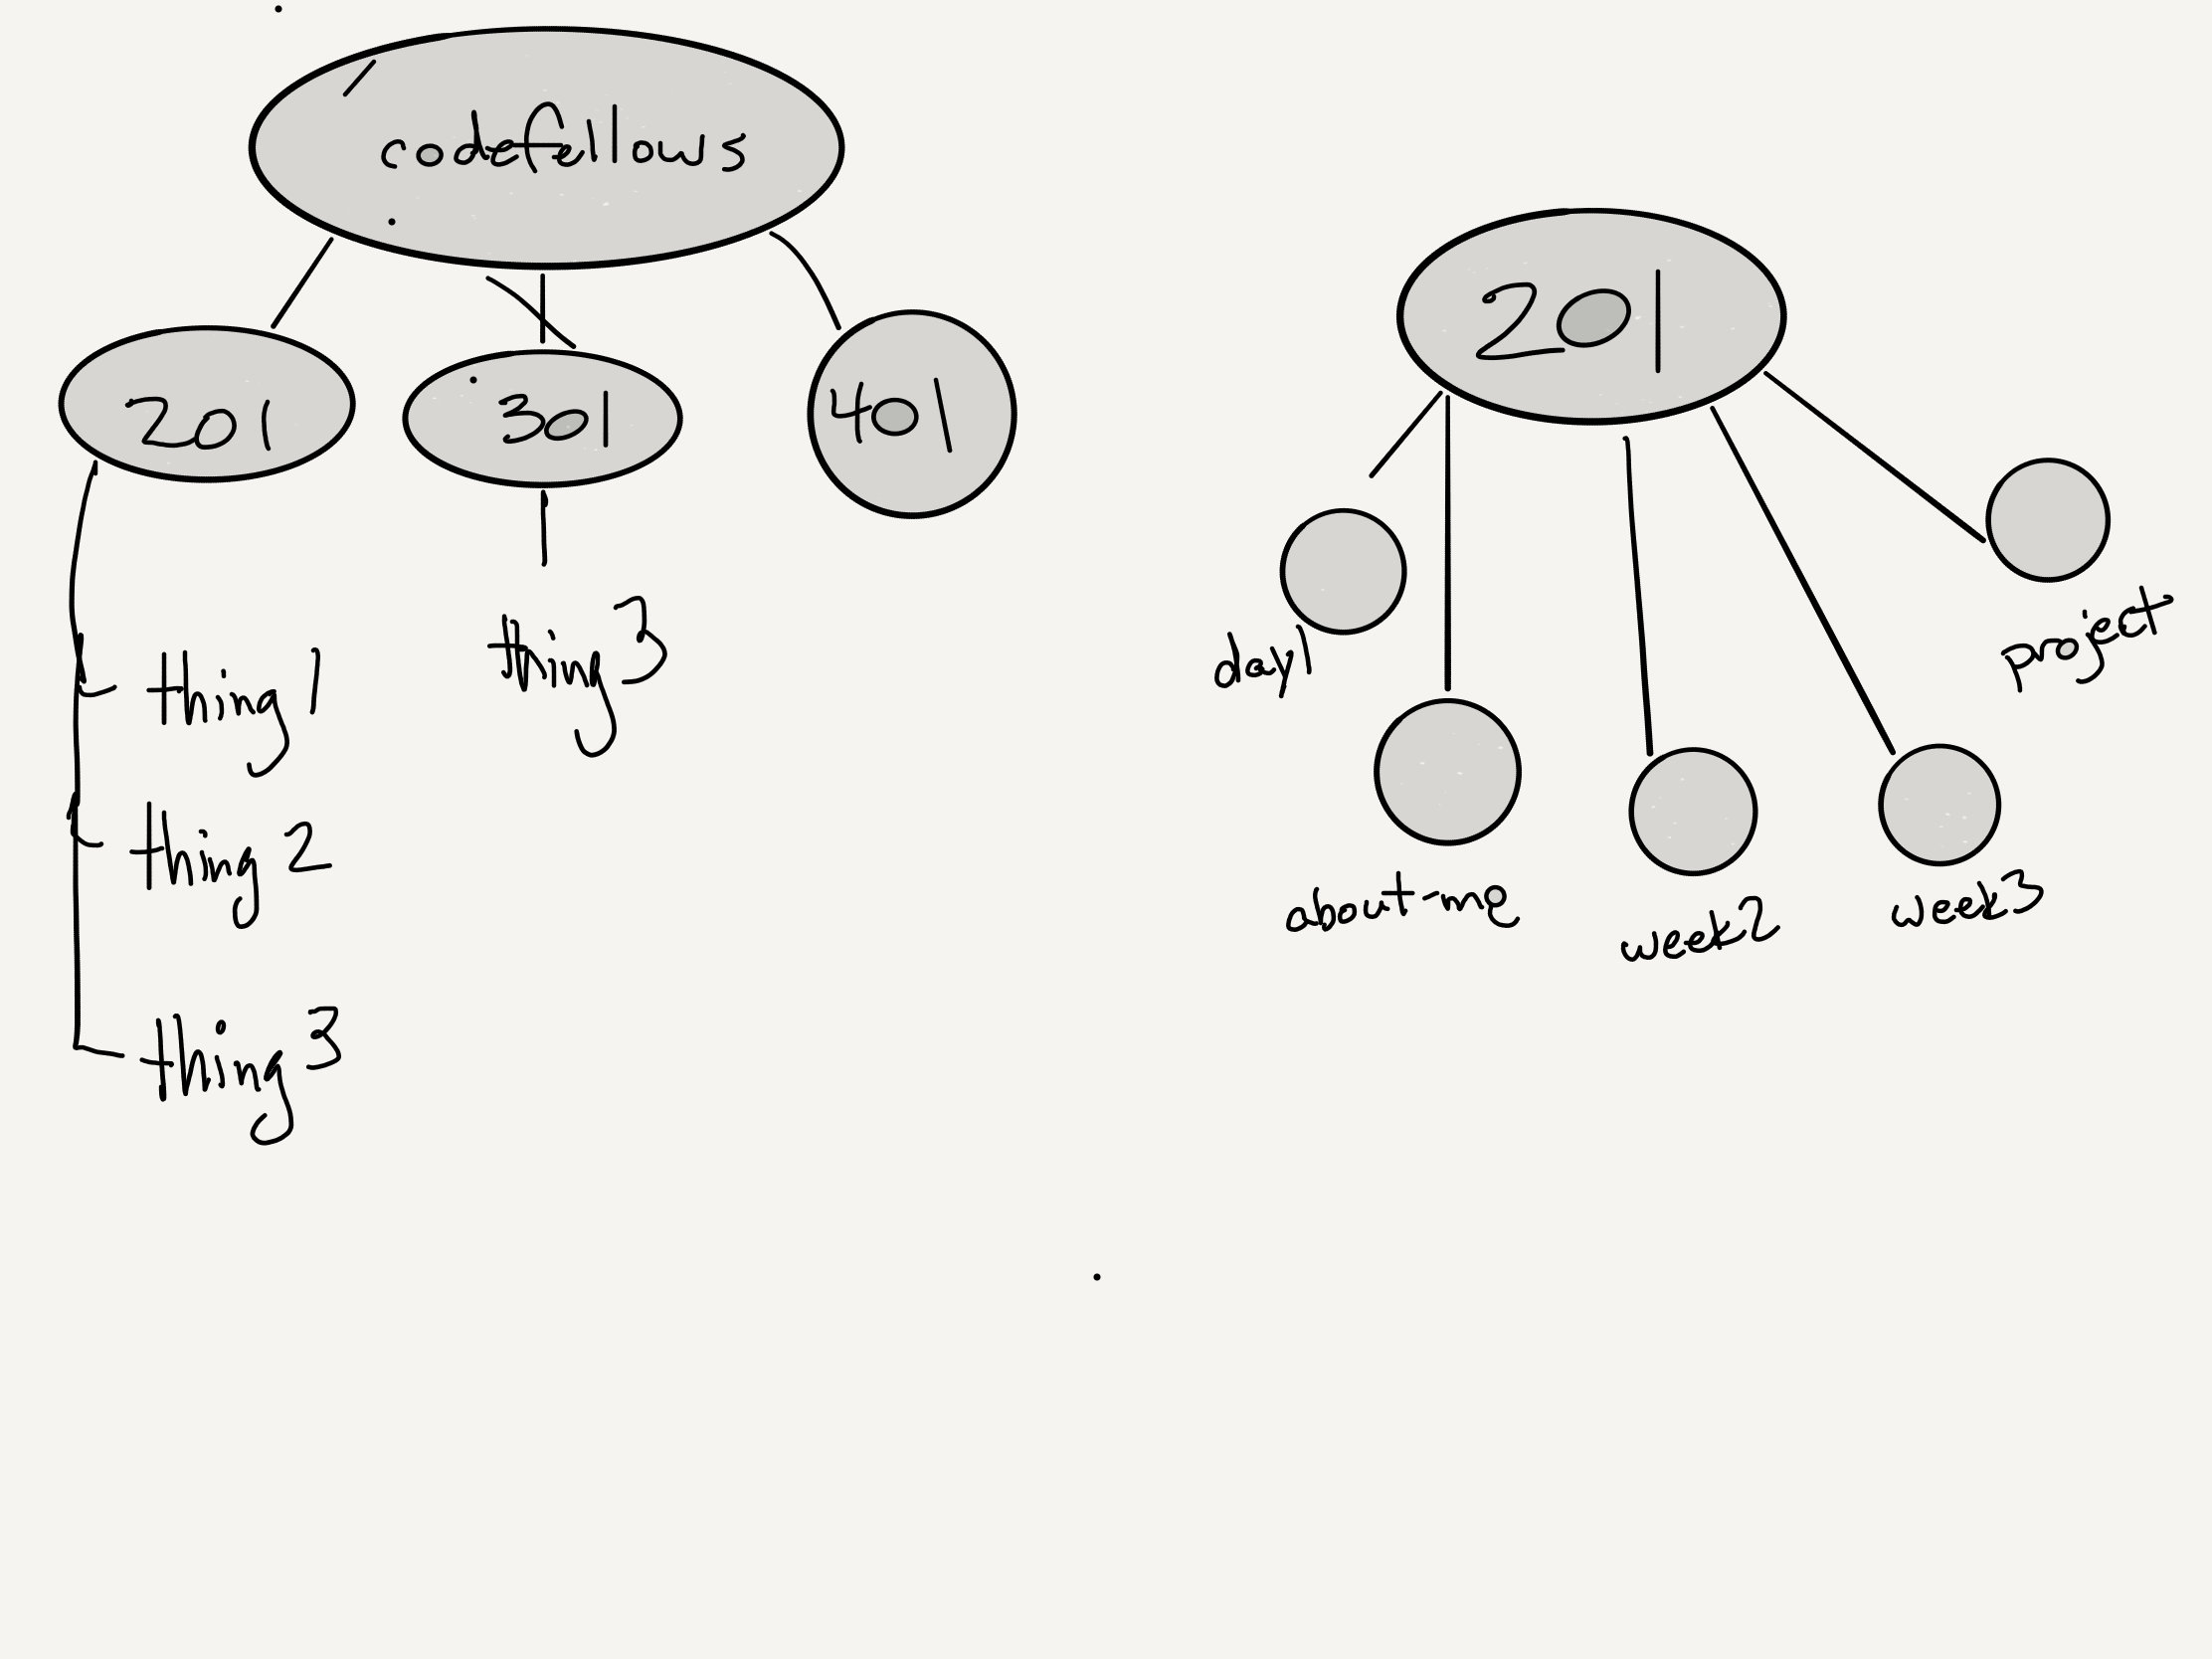 codefellows
201
301
401
thing 1
thing 2
thing 3
thing 3
201
day1
about-me
week2
week3
project